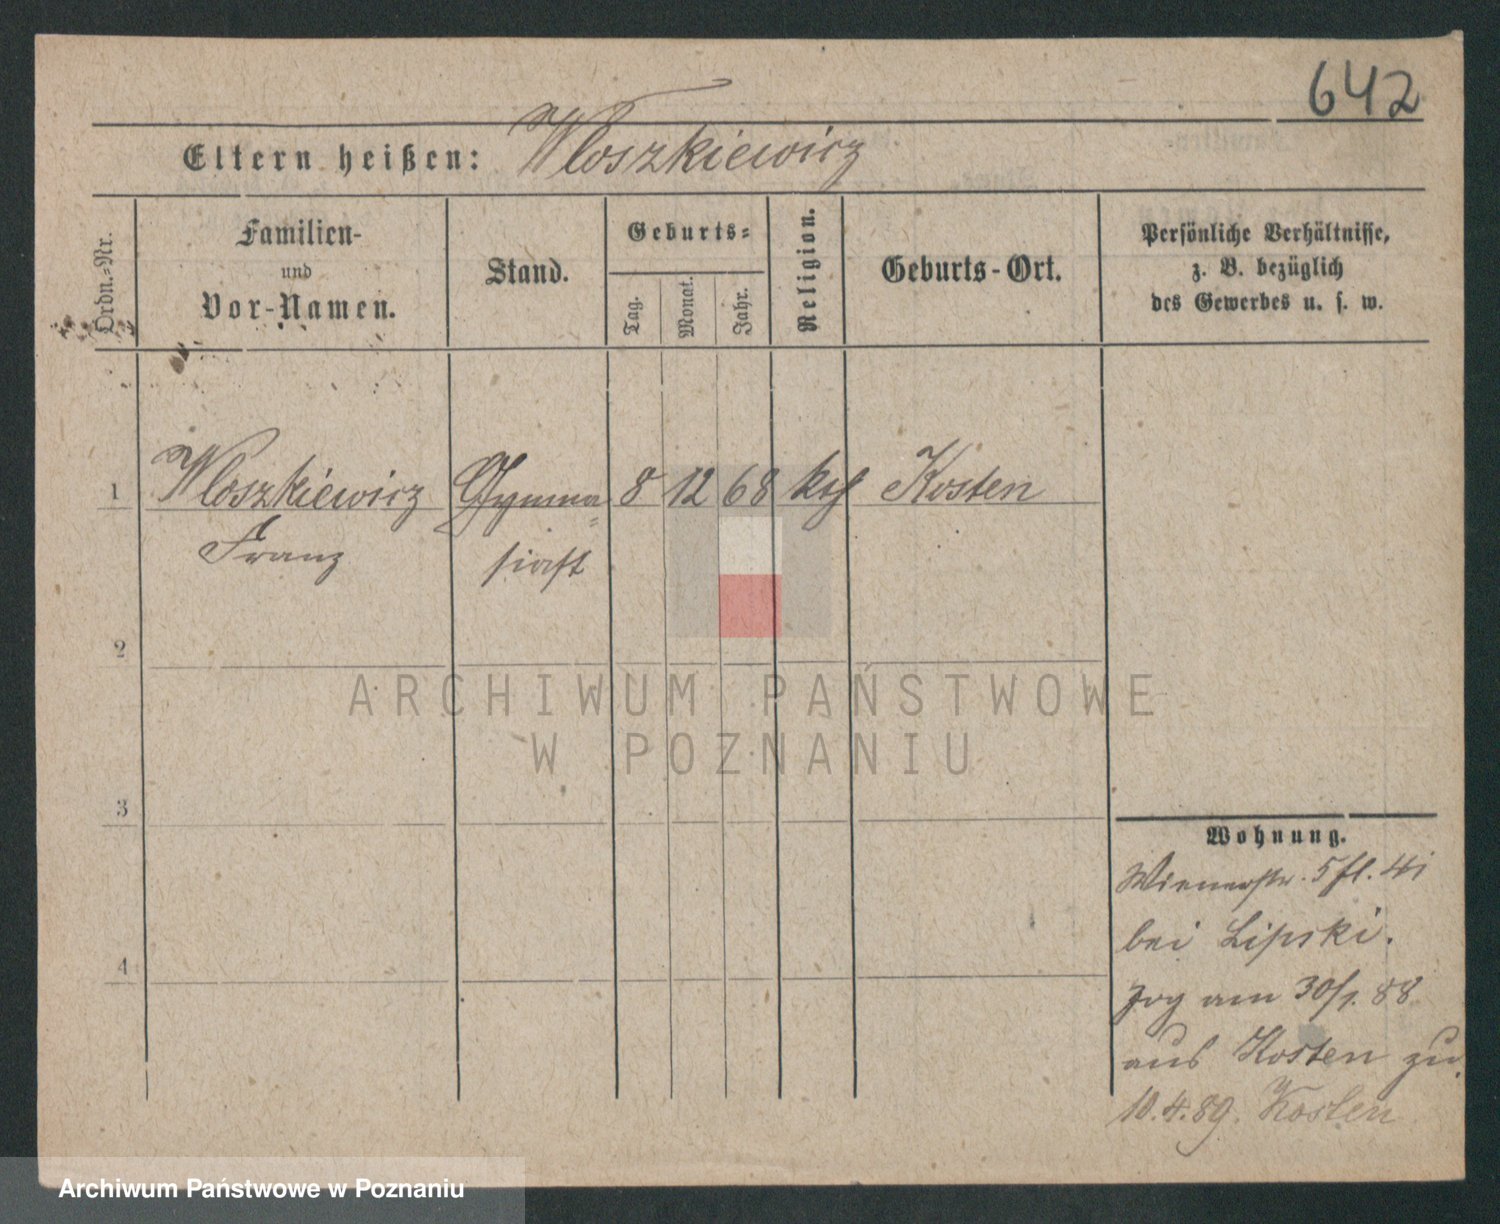 642
Eltern heißen: Wloszkiewicz
Ordn.-Nr.
Familien-
und
Vor-Namen.
Stand.
Geburts-
Tag.
Monat.
Jahr.
Religion.
Geburts-Ort.
Persönliche Verhältnisse,
z. B. bezüglich
des Gewerbes u. s. w.
1 Wloszkiewicz Gymna= 8 12 68 kth Kosten
Franz siast
2
3
4
ARCHIWUM PAŃSTWOWE
W POZNANIU
Wohnung.
Wienerstr. 5 fl. 4i
bei Lipski.
Zog am 30/1. 88
aus Kosten zu.
10.4.89. Kosten
Archiwum Państwowe w Poznaniu